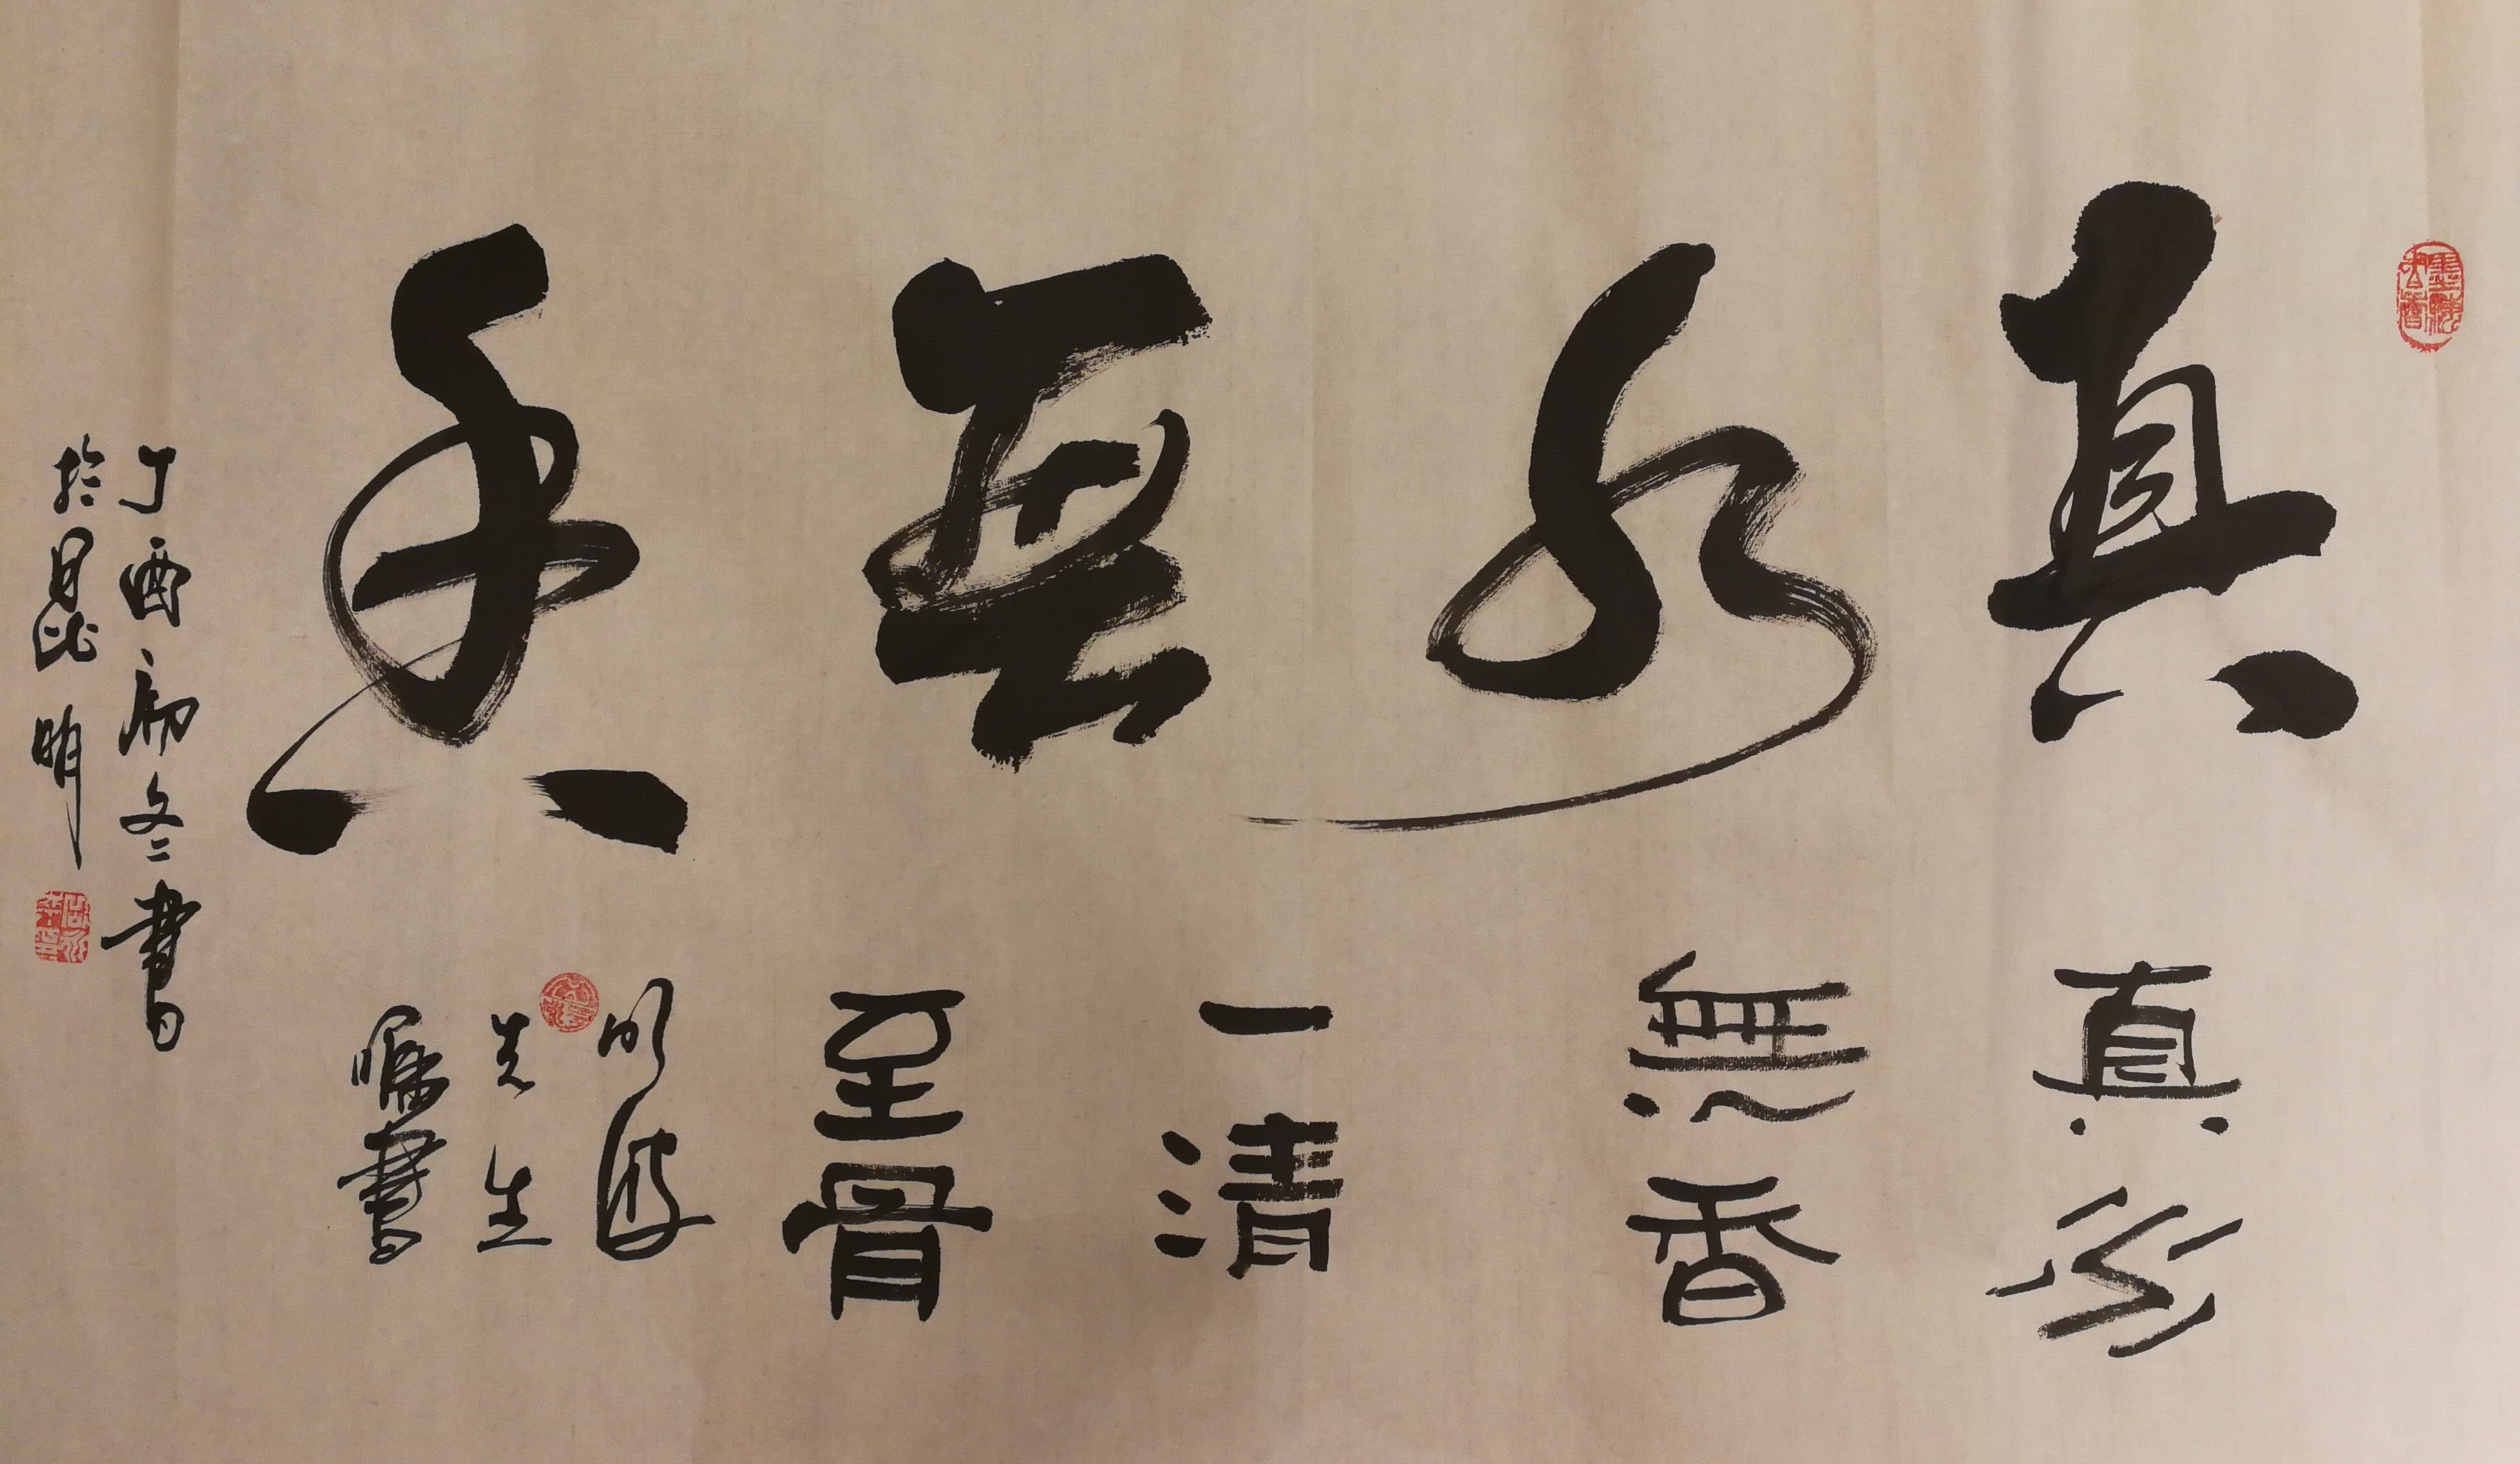 真水無香
真水
無香
一清
至骨
明波
先生
嘱書
丁酉初冬書
於昆明